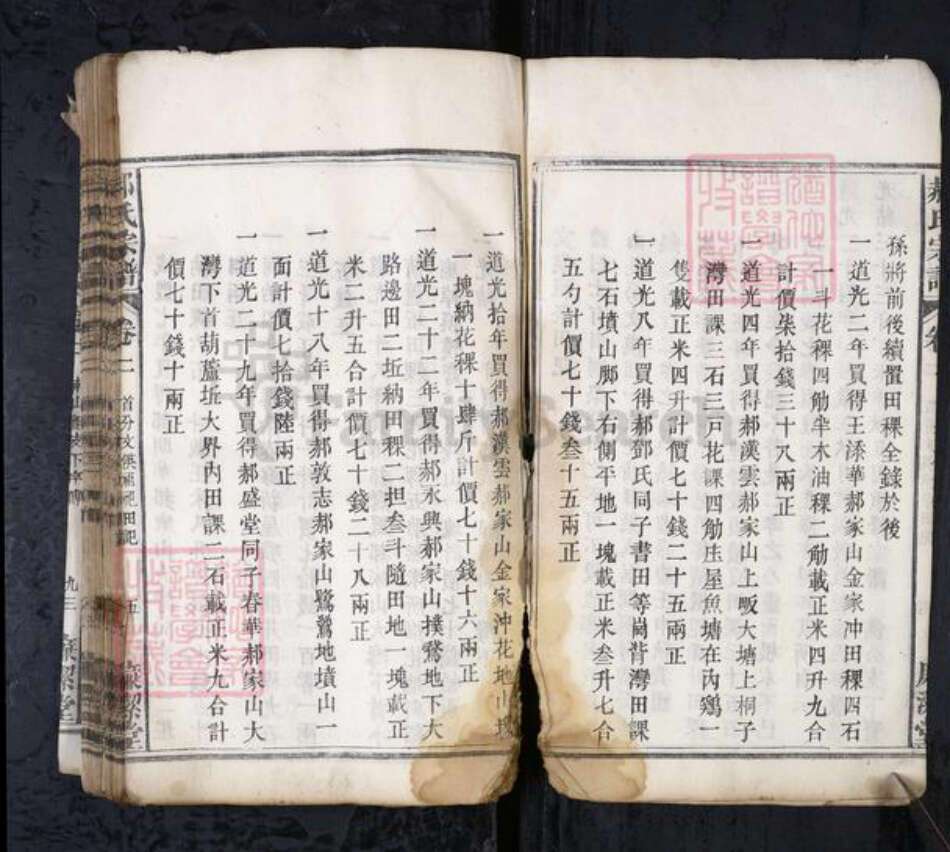 孫將前後續置田稞全錄於後
一道光二年買得王添華郝家山金家冲田稞四石
一斗花稞四觔半木油稞二觔載正米四升九合
計價柒拾錢三十八兩正
一道光四年買得郝漢雲郝家山上畈大塘上桐子
灣田課三石三戸花課四觔庄屋魚塘在内鷄一
隻載正米四升計價七十錢二十五兩正
一道光八年買得郝鄧氏同子書田等崗背灣田課
七石墳山脚下右側平地一塊載正米叁升七合
五勺計價七十錢叁十五兩正
一道光拾年買得郝漢雲郝家山金家沖花地山塲
一塊納花稞十肆斤計價七十錢十六兩正
一道光二十二年買得郝永興郝家山撲鵞地下大
路邊田二坵納田稞二担叁斗隨田地一塊載正
米二升五合計價七十錢二十八兩正
一道光十八年買得郝敦志郝家山鷺鷥地墳山一
面計價七拾錢陸兩正
一道光二十九年買得郝盛堂同子春華郝家山大
灣下首葫蘆坵大界内田課二石載正米九合計
價七十錢十兩正
郝氏宗譜
卷二
首分文
祀田記
五
九三
潔堂
FamilySearch